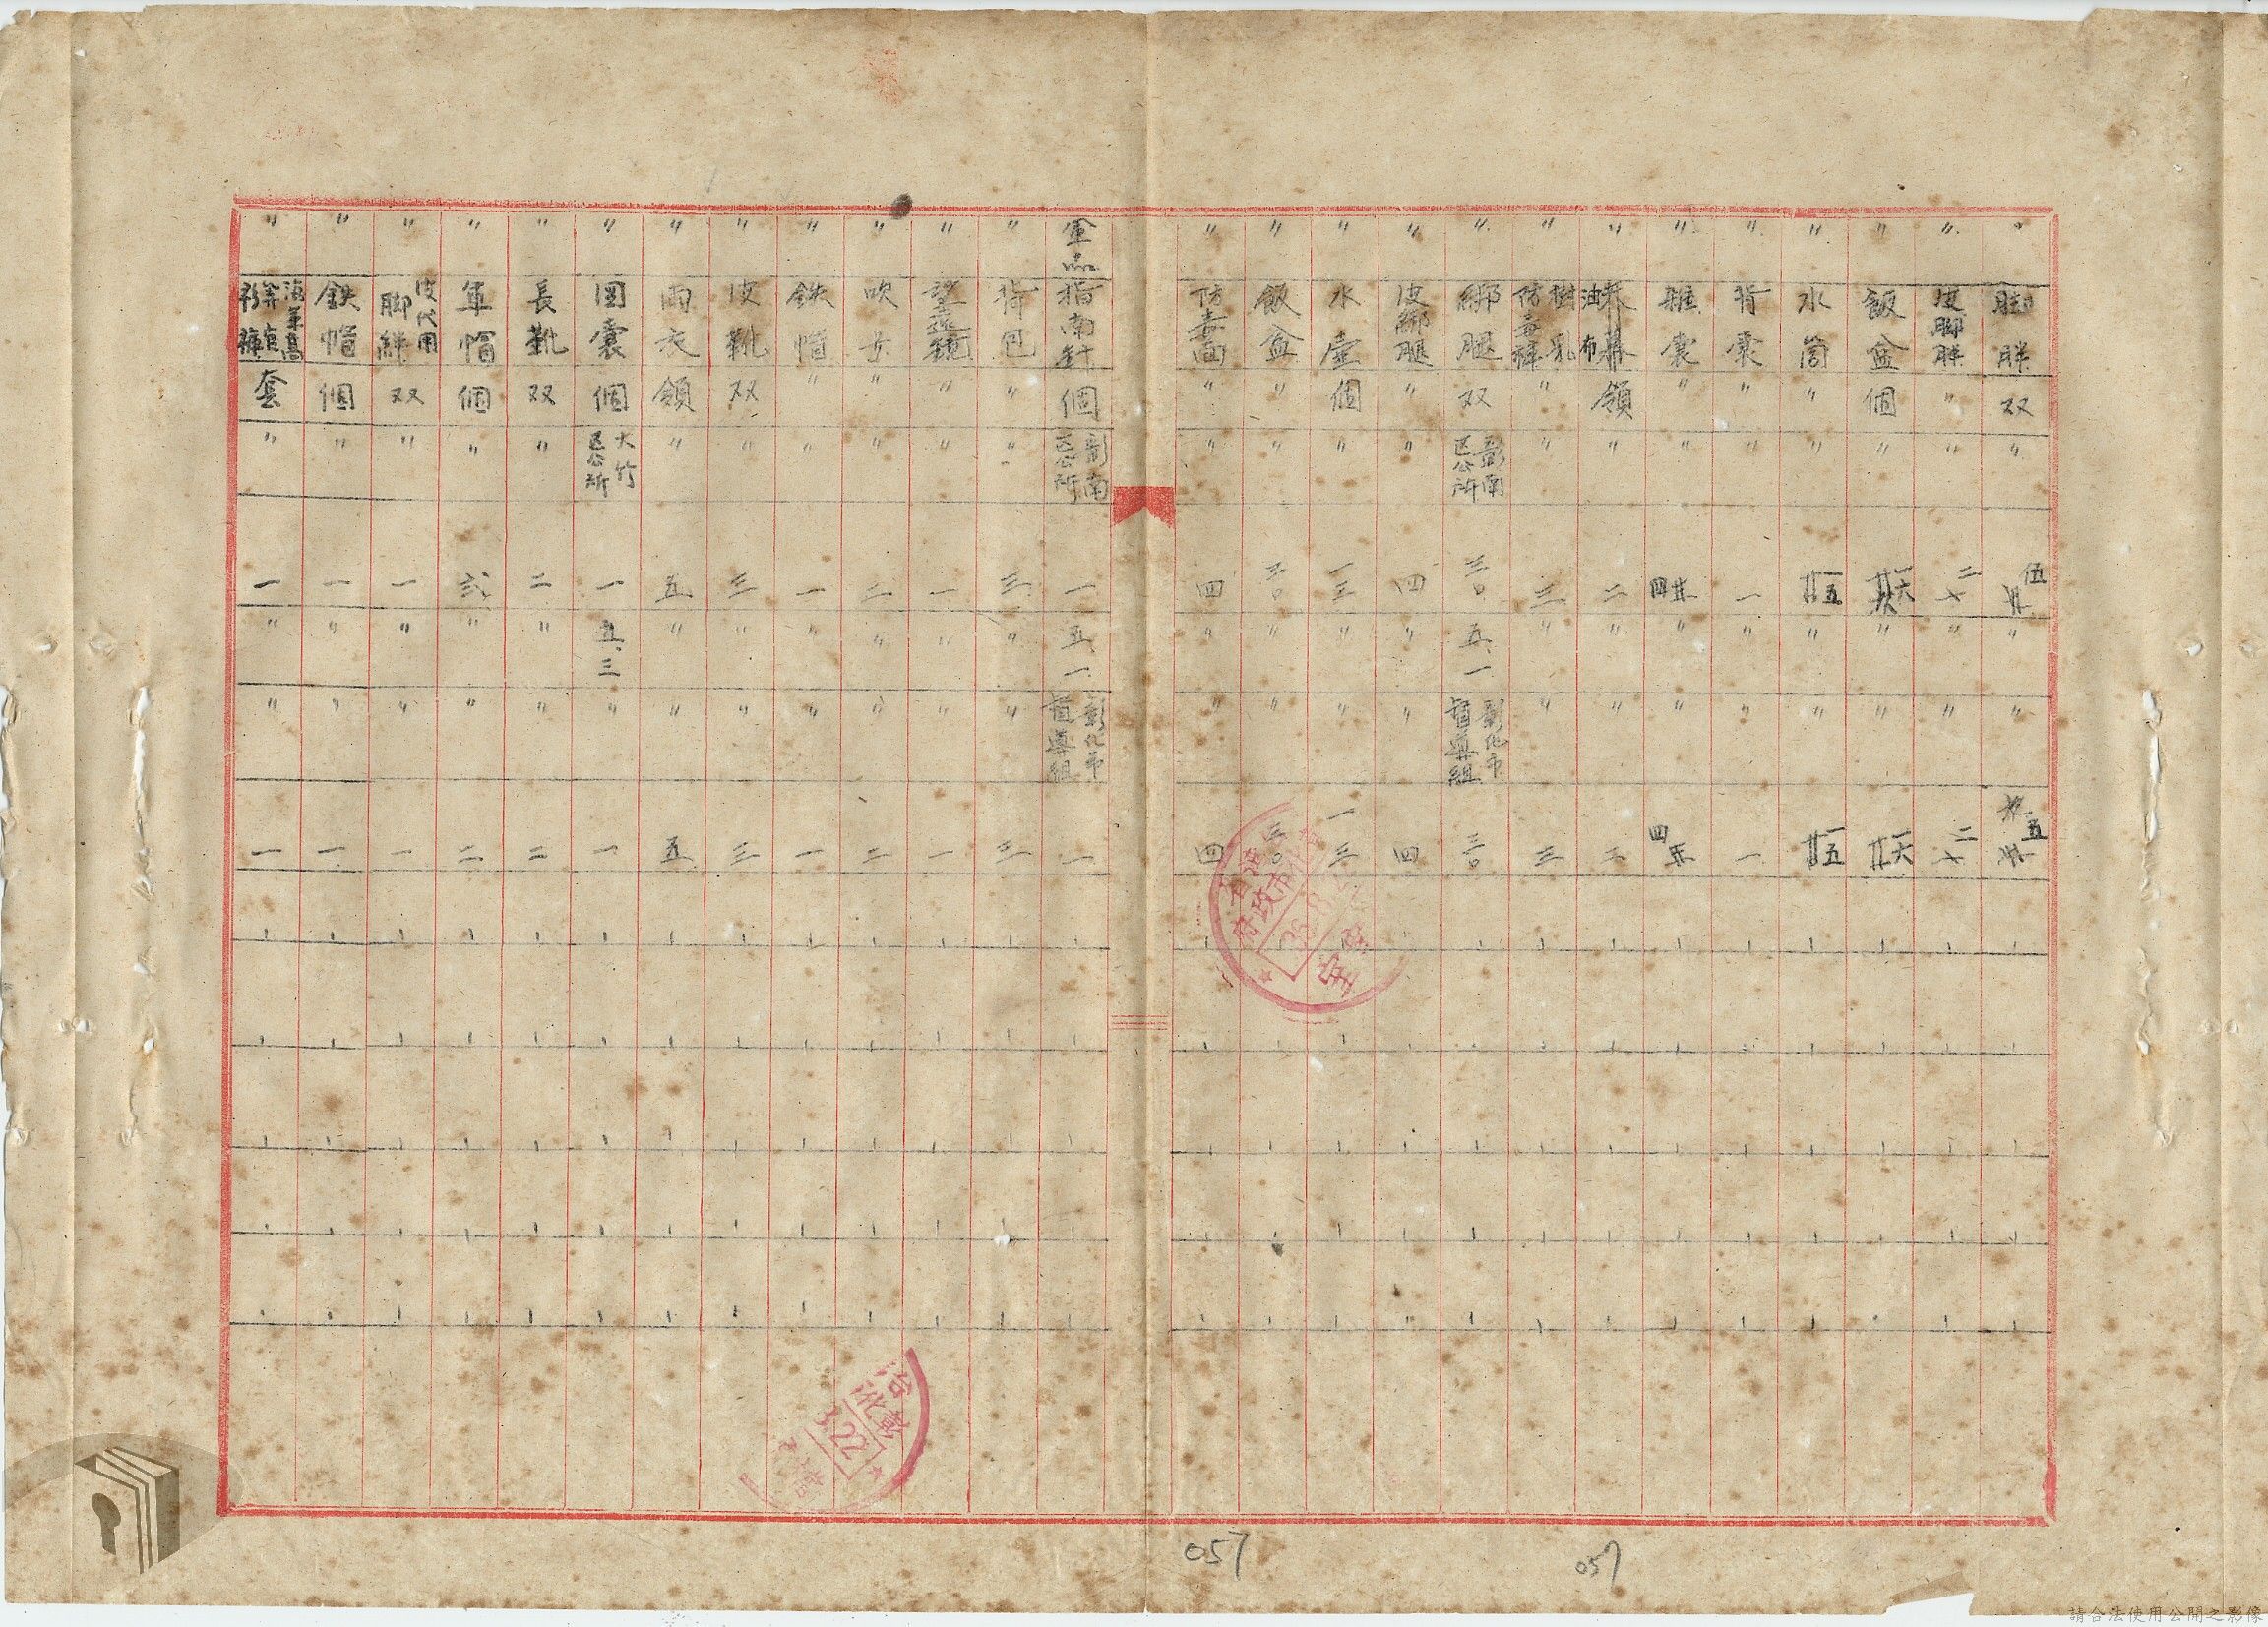 〃 脚絆 双 〃 伍 〃 〃 五
〃 皮脚絆 〃 〃 二七 〃 〃 二七
〃 飯盒 個 〃 〃 〃
〃 水筒 〃 〃 廿五 〃 〃 廿五
〃 背囊 〃 〃 一 〃 〃 一
〃 雜囊 〃 〃 〃 〃
〃 天幕油布 領 〃 二 〃 〃 二
〃 樹乳防毒褲 〃 〃 三 〃 〃 三
〃 綁腿 双 彰南区公所 三〇 五、一 彰化市督導組 三〇
〃 皮綁腿 〃 〃 四 〃 〃 四
〃 水壺 個 〃 一三 〃 〃 一三
〃 飯盒 〃 〃 〃 〃 三〇
〃 防毒面 〃 〃 四 〃 〃 四
軍品 指南針 個 彰南区公所 一 五、一 彰化市督導組 一
〃 背包 〃 〃 三 〃 〃 三
〃 望遠鏡 〃 〃 一 〃 〃 一
〃 〃 〃 二 〃 〃 二
〃 鉄帽 〃 〃 一 〃 〃 一
〃 皮靴 双 〃 三 〃 〃 三
〃 雨衣 領 〃 五 〃 〃 五
〃 囊 個 大竹区公所 一 五、三 〃 一
〃 長靴 双 〃 二 〃 〃 二
〃 軍帽 個 〃 弍 〃 〃 二
〃 皮代用脚絆 双 〃 一 〃 〃 一
〃 鉄帽 個 〃 一 〃 〃 一
〃 海軍高等官 套 〃 一 〃 〃 一
府政市
3.22
057
057
請合法使用公開之影像